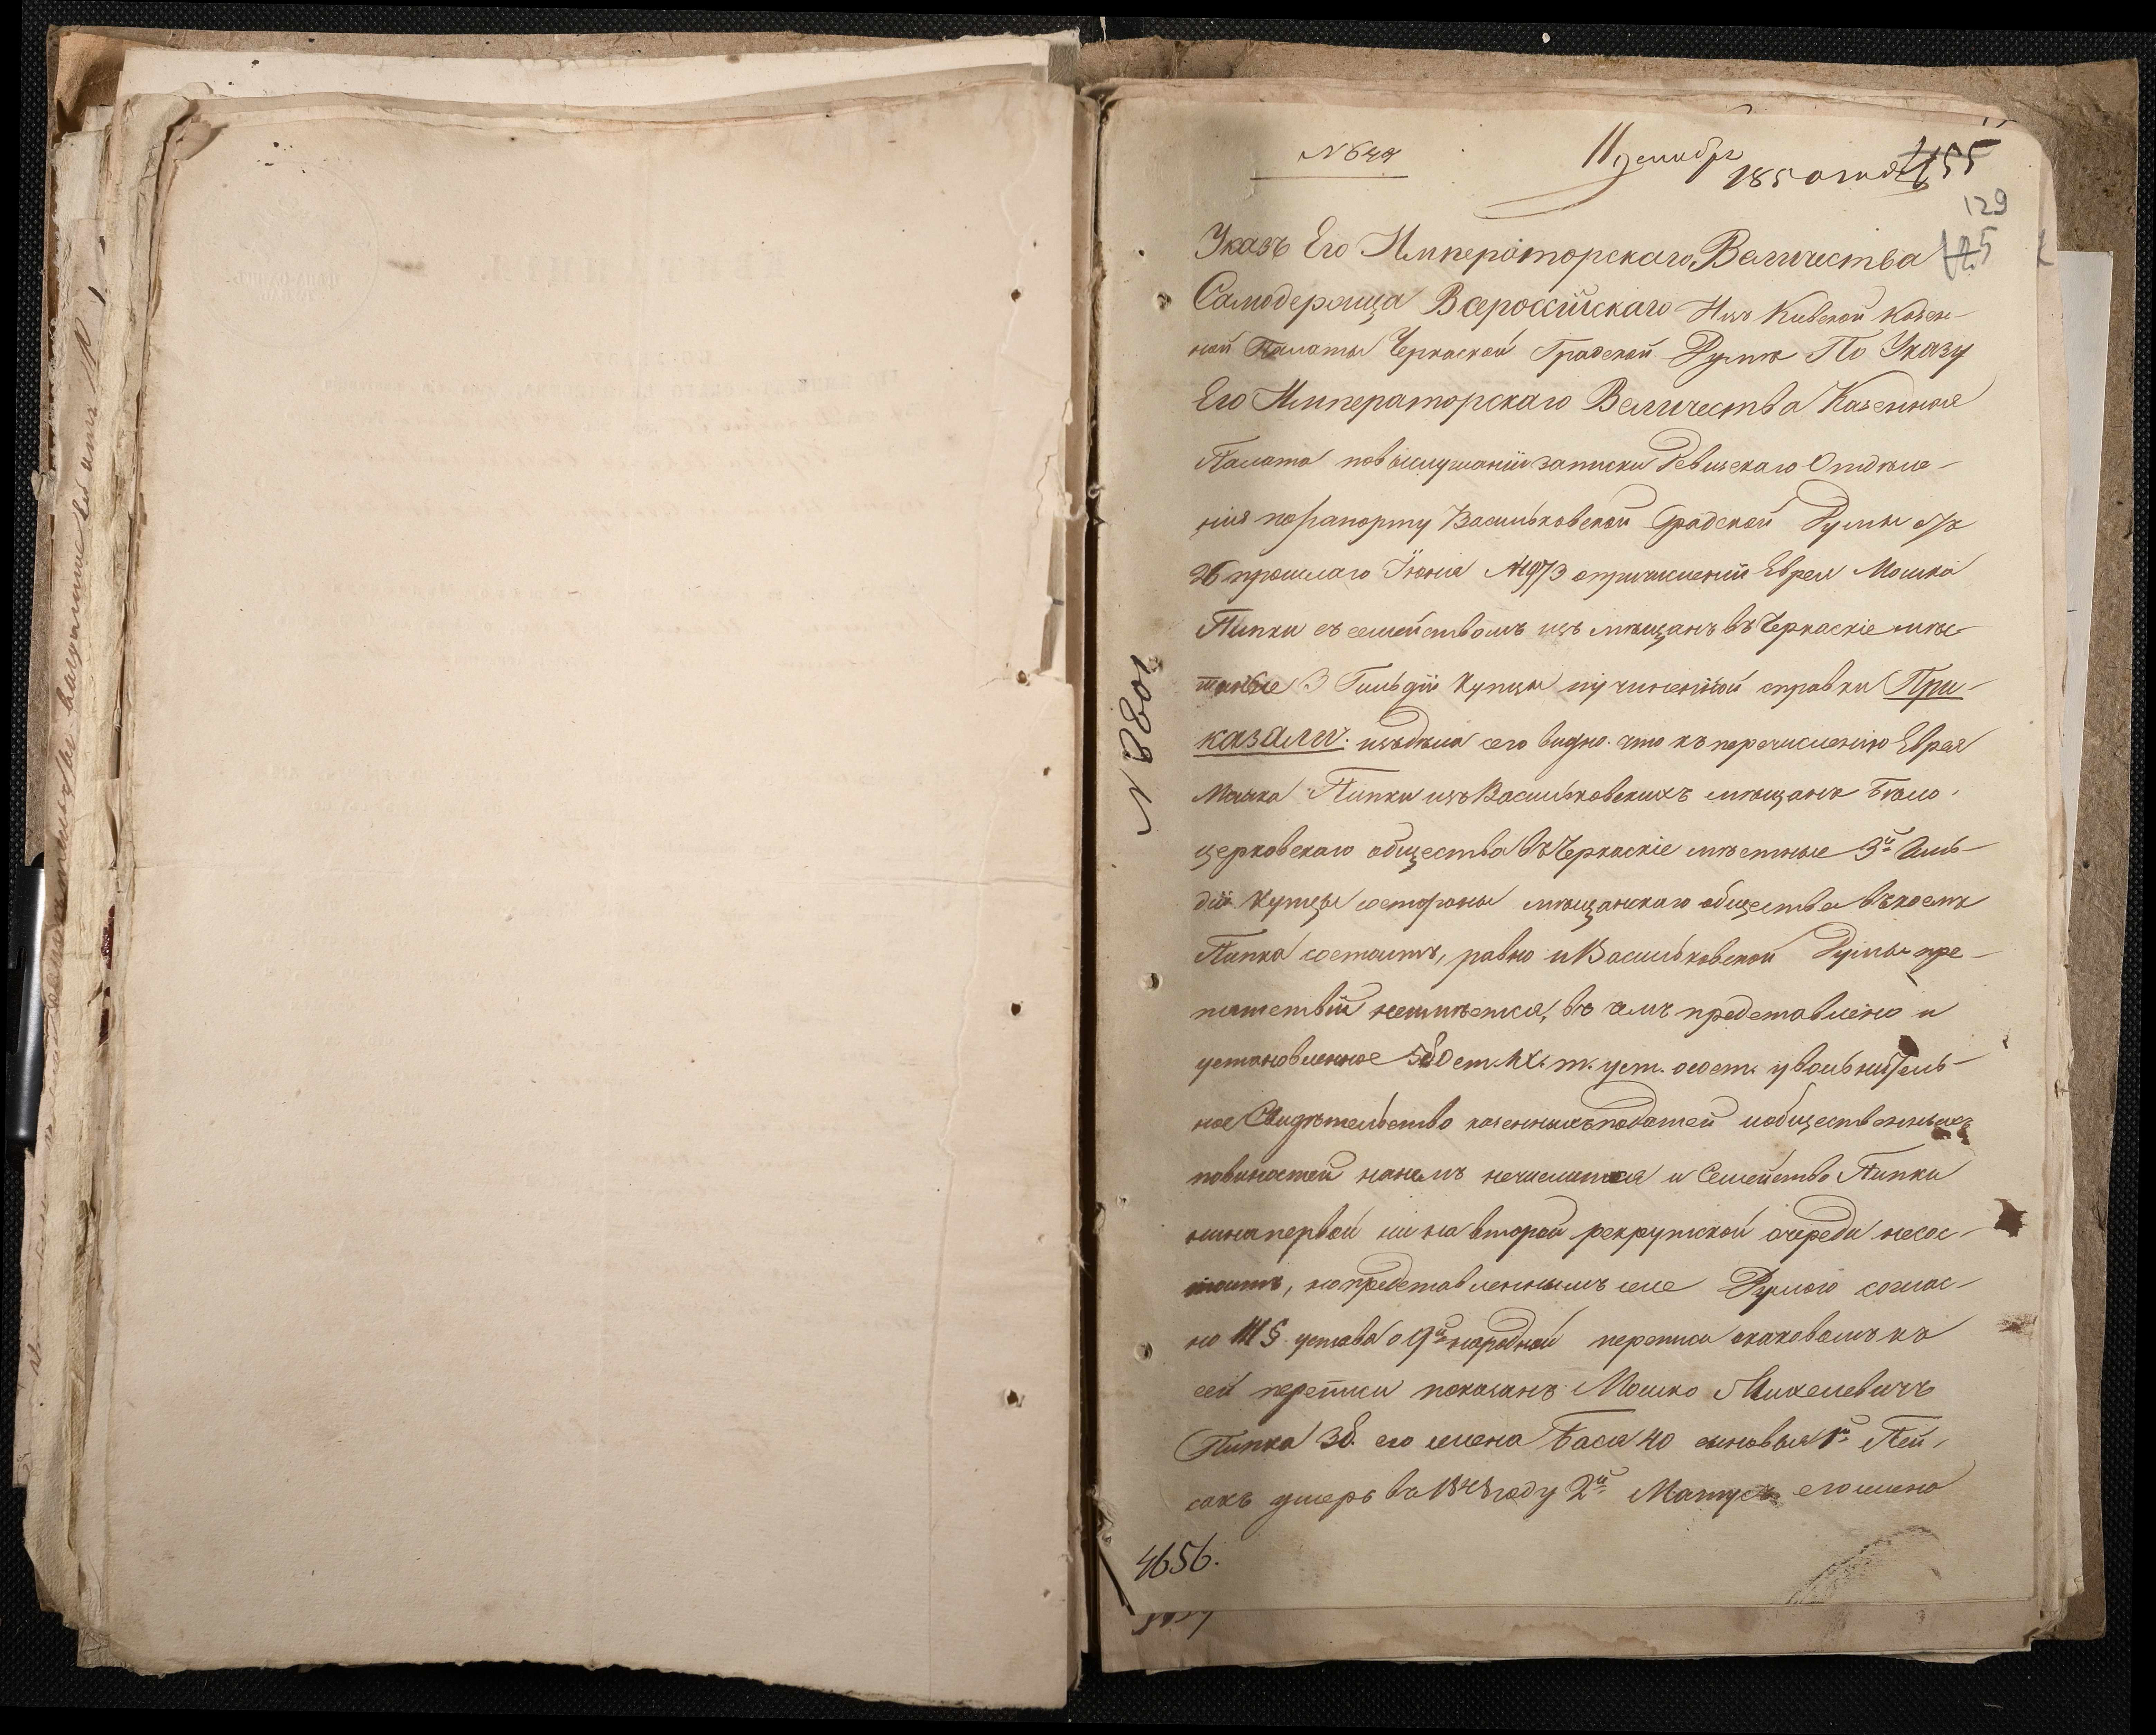 11 декабря
1850 года
155
129
125
Указъ Его Императорскаго Величества
Самодержца Всероссійскаго Изъ Кіевской Казен-
ной Палаты Черкаской Градской Думѣ По Указу
Его Императорскаго Величества Казенная
Палата по выслушаніи записки Ревизскаго Отдѣле-
нія по рапорту Васильковской Градской Думы отъ
26 прошлаго Іюня № 1973 о причисленіи Еврея Мошка
Пипки съ семействомъ изъ мѣщанъ въ Черкаскіе мѣс-
тные 3 Гильдіи купцы и учиненной справки При-
казали: изъ дѣла сего видно что къ перечисленію Еврея
Мошка Пипки изъ Васильковскихъ мѣщанъ Бѣло-
церковскаго общества въ Черкаскіе мѣстные 3й Гиль-
діи купцы со стороны мѣщанскаго общества въ коемъ
Пипка состоитъ, равно и Васильковской Думы пре-
пятствій неимѣется, въ чемъ представлено и
установленное ст. IX. т. уст. о сост. увольнитель-
ное Свидѣтельство казенныхъ податей и общественныхъ
повиностей на немъ нечислится и Семейство Пипки
ни на первой ни на второй рекрутской очереди несос-
тоитъ, но представленнымъ Думою соглас-
но III § устава о 9й народной переписи к
сей переписи показанъ Мошко
Пипка его жена Бася 40 сыновья 1й Пей-
сахъ умеръ въ 1848 году 2й Матусъ его жена
№ 8801
4656.